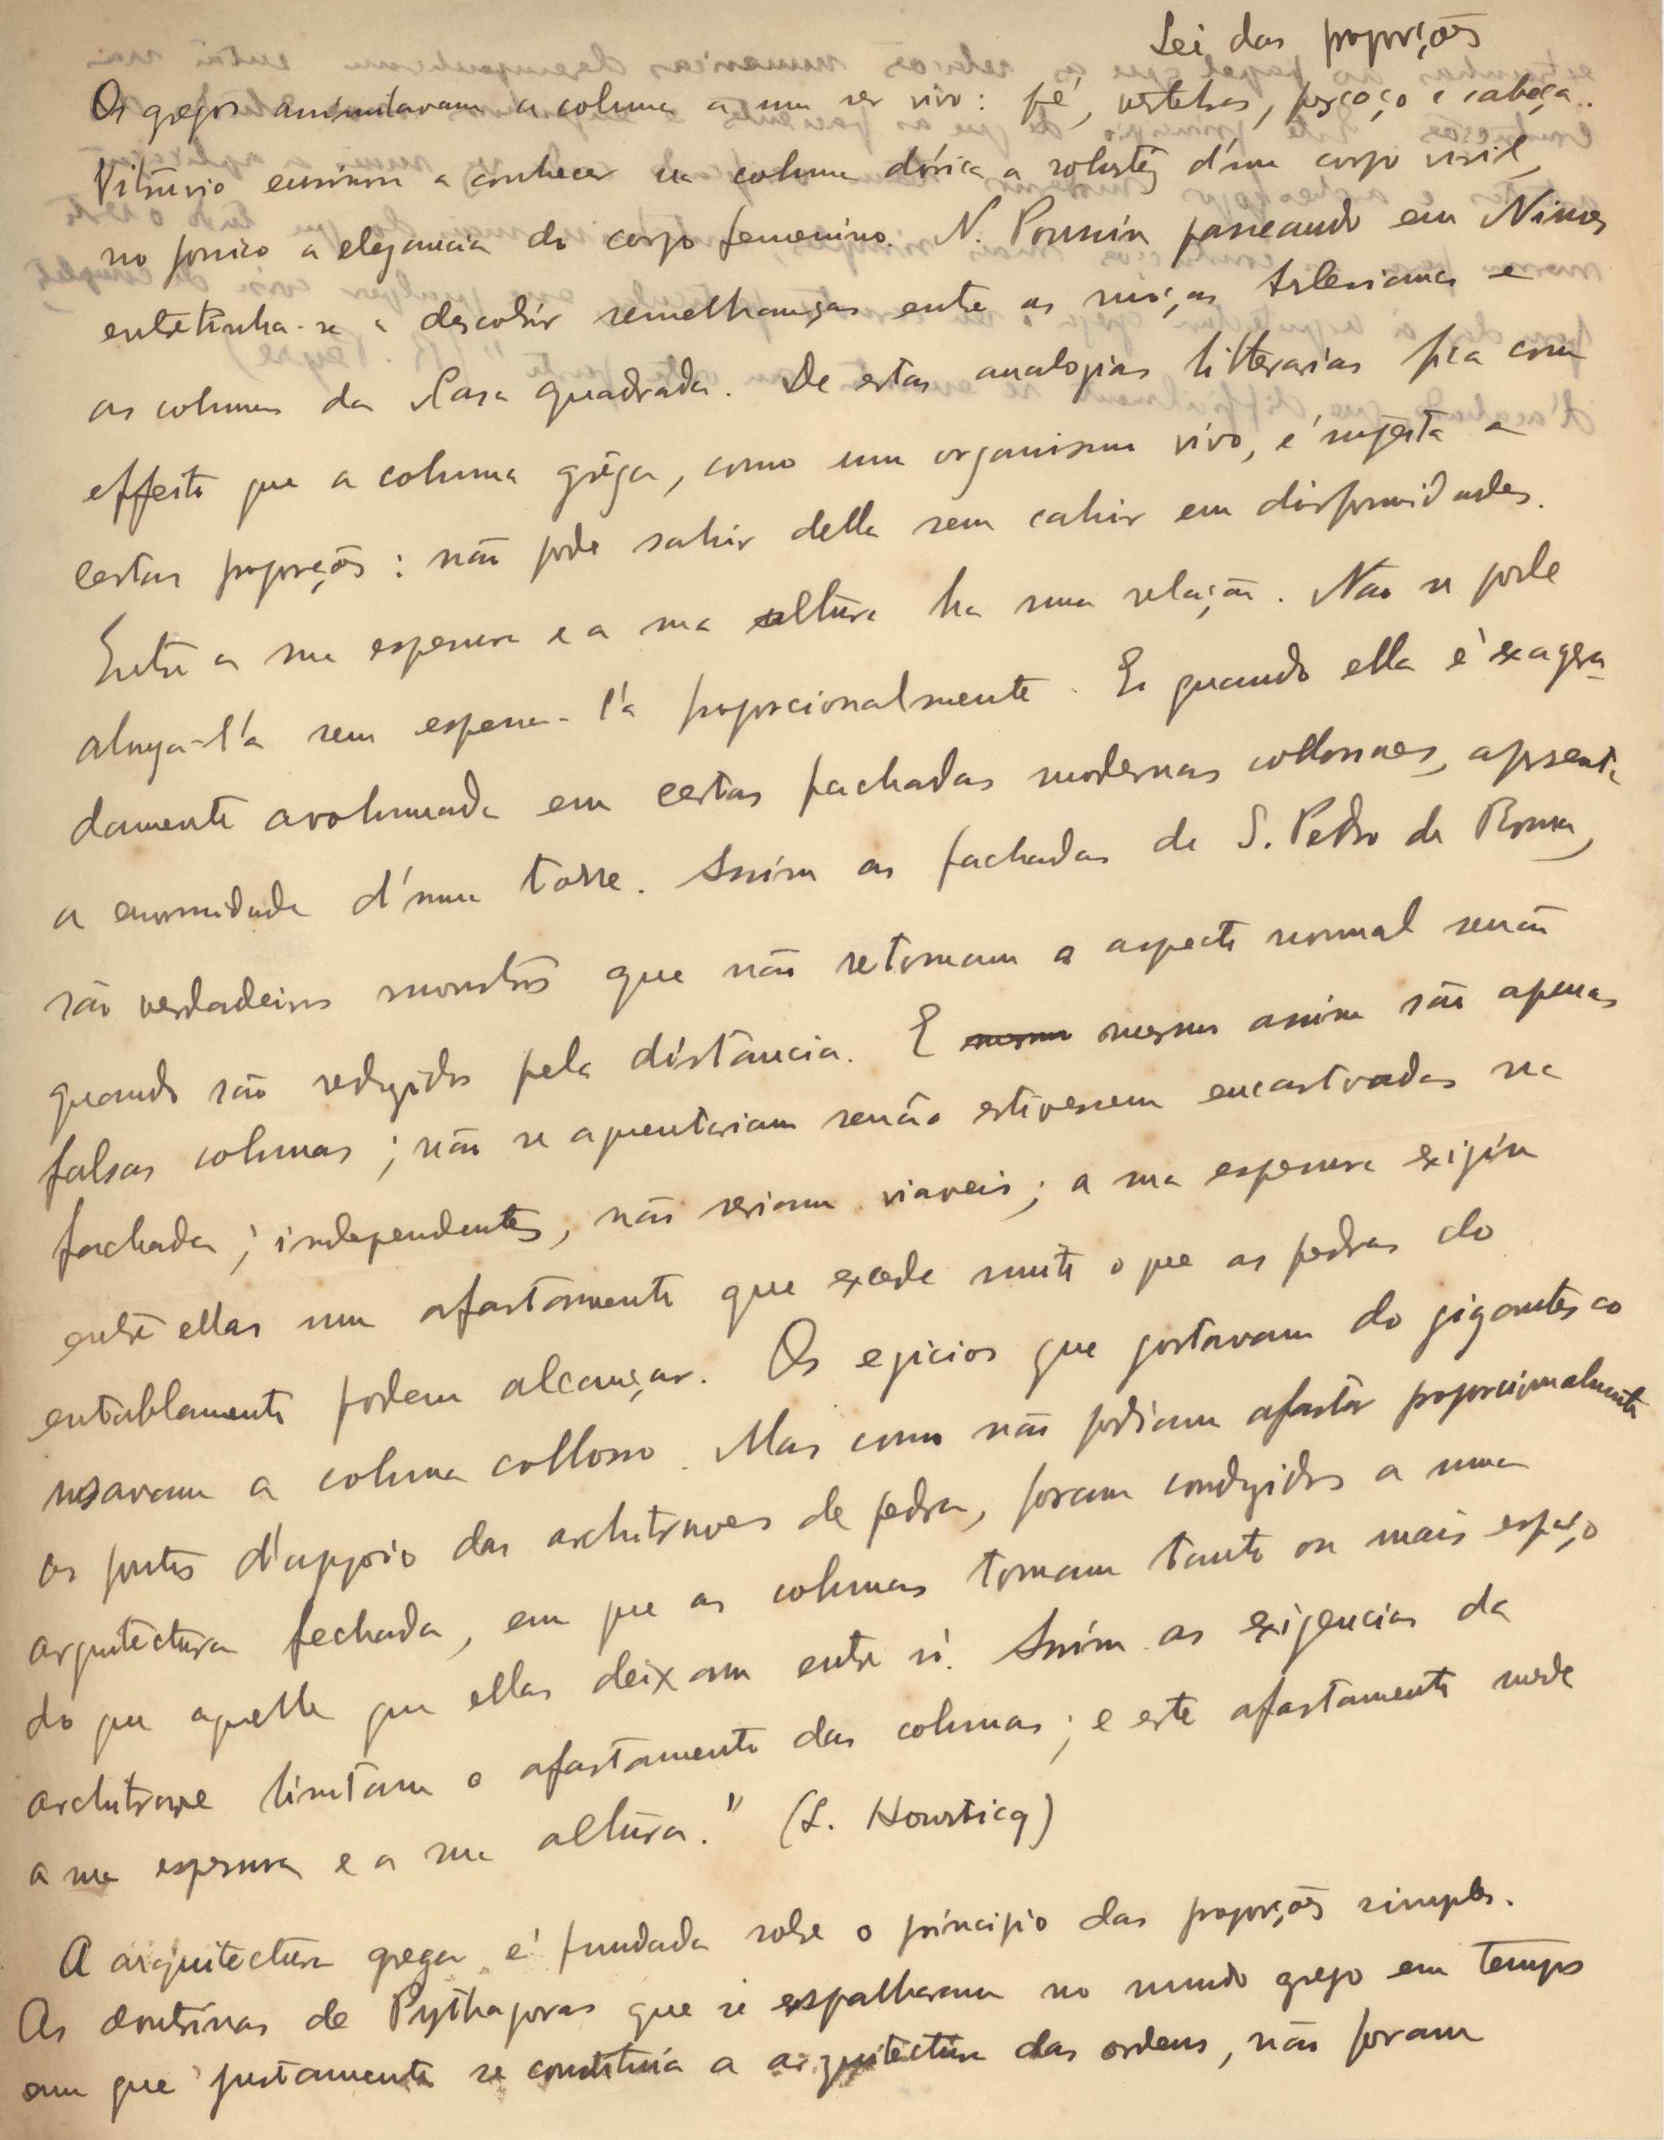 Lei das proporções
Os gregos assimilavam a coluna a um ser vivo: pé, vertebras, pescoço e cabeça.
Vitruvio ensinou a conhecer na coluna dórica a robustez d'um corpo viril,
no jonico a elegancia do corpo femenino. N. Poussin passeando em Nimes
entretinha-se a descobrir semelhanças entre as moças Arlesianas e
as colunas da Casa quadrada. De estas analogias litterarias fica com
effeito que a columna grêga, como um organismo vivo, é sujeita a
certas proporções: não pode sahir della sem cahir em disformidades.
Entre a sua espessura e a sua altura ha uma relação. Não se pode
alonga-l'a sem espessa-l'a proporcionalmente. E quando ella é exagera-
damente avolumada em certas fachadas modernas collossaes, apresenta
a enormidade d'uma torre. Assim as fachadas de S. Pedro de Roma,
são verdadeiros monstros que não retomam o aspecto normal senão
quando são reduzidos pela distancia. E mesmo assim são apenas
falsas colunas; não se aguentariam senão estivessem encastradas na
fachada; independentes, não seriam viaveis; a sua espessura exigia
entre ellas um afastamento que excede muito o que as pedras do
entablamento podem alcançar. Os egicios que gostavam do gigantesco
usavam a coluna collosso. Mas como não podiam afastar proporcionalmente
os pontos d'appoio das architraves de pedra, foram conduzidos a uma
arquitectura fechada, em que as colunas tomam tanto ou mais espaço
do que aquelle que ellas deixam entre si. Assim as exigencias da
architrave limitam o afastamento das colunas; e este afastamento mede
a sua espessura e a sua altura." (L. Hourticq)
A arquitectura grega é fundada sobre o principio das proporções simples.
As doutrinas de Pythagoras que se espalharam no mundo grego em tempos
em que justamente se constituia a arquitectura das ordens, não foram